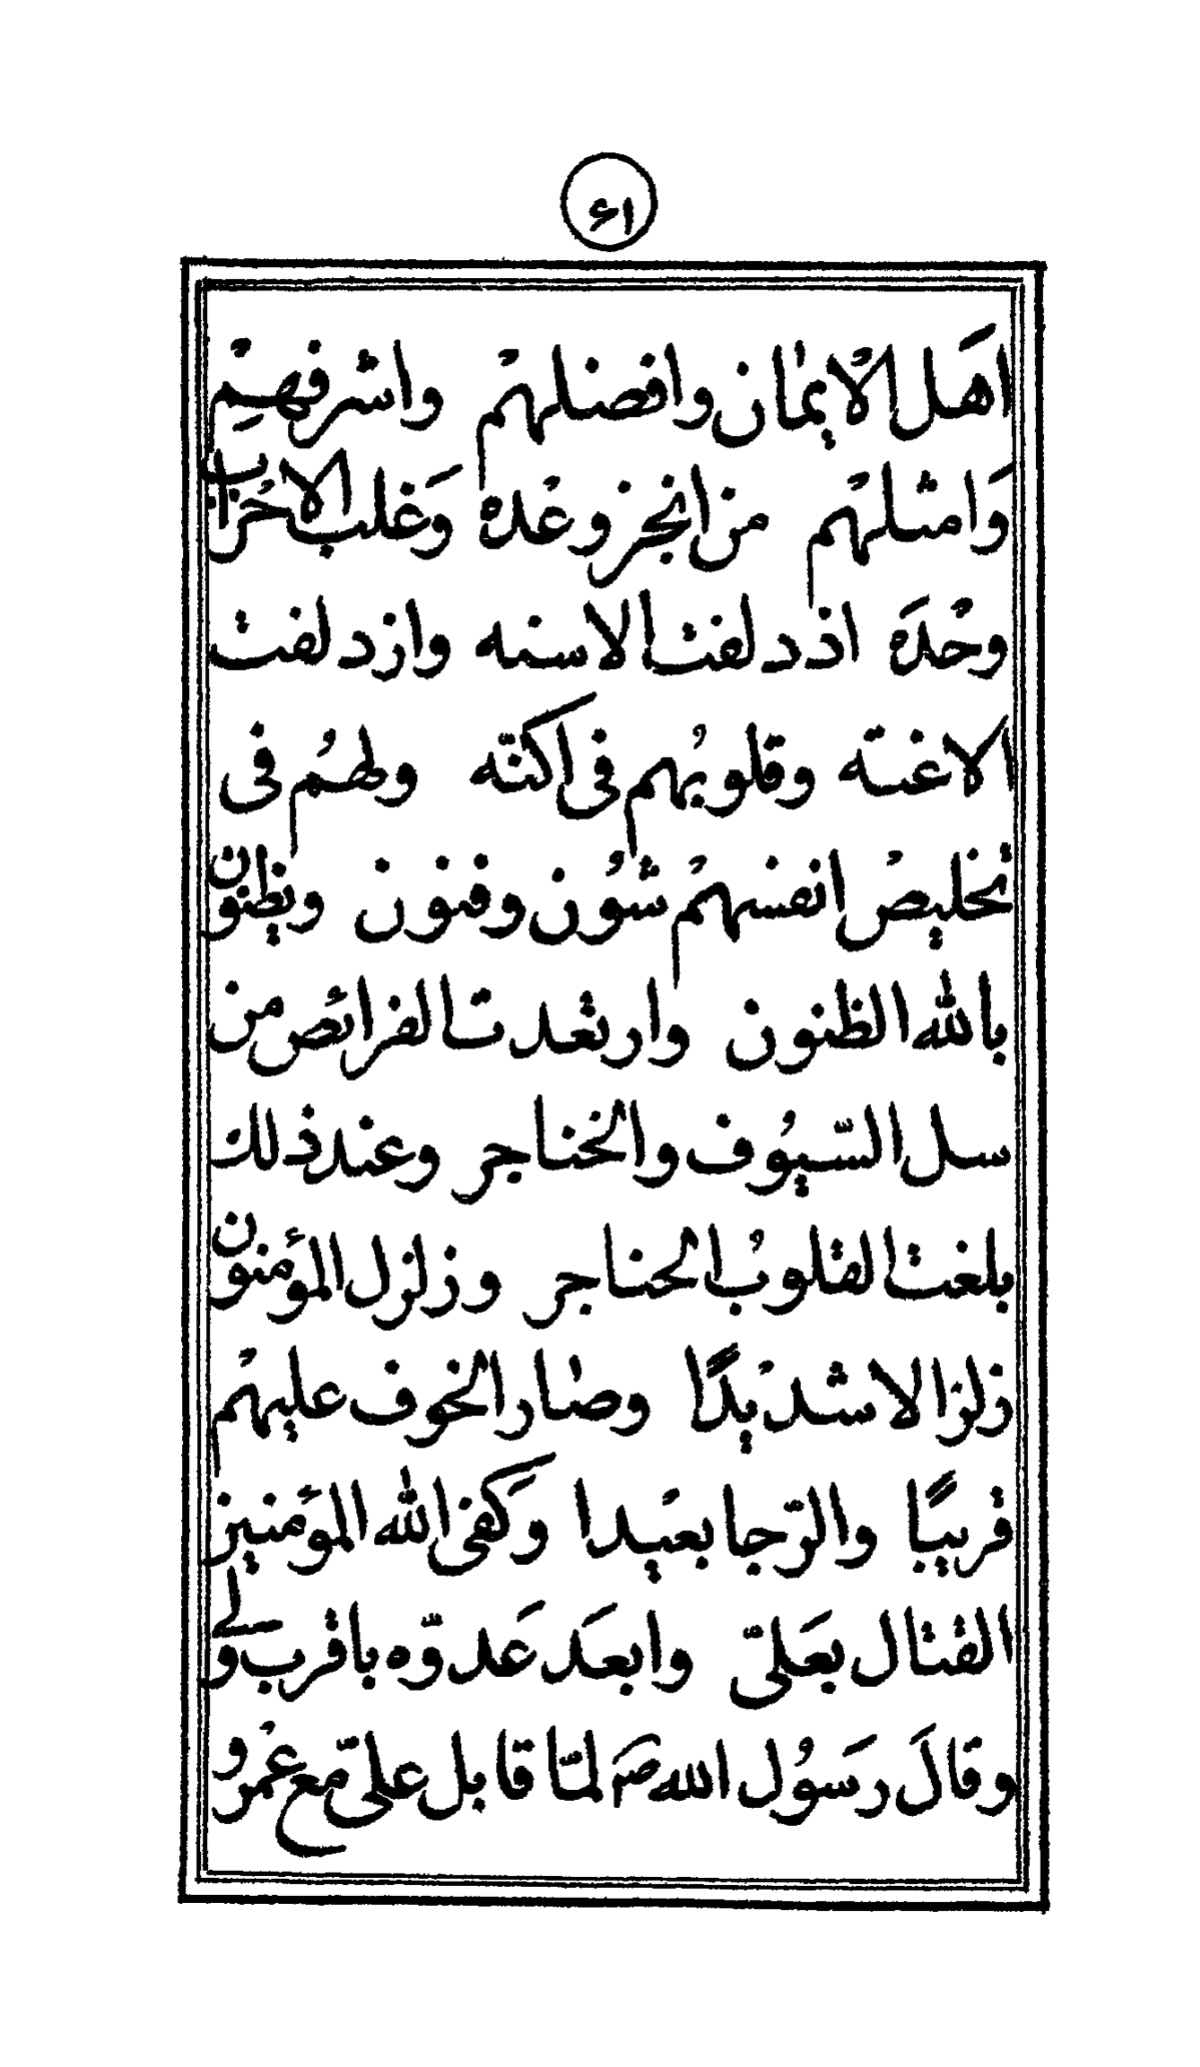 ۶۱
اَهَل الْايمٰان وافضلهُم واشرفهِمُ
وَامثلهُم من انجز وعْده وَغلب الاحُزاب
وحْدَه اذ دلفت الاسنه وازدلفت
الاغنه وقلوبُهم فى اكنّه ولهمُ فى
تخليصُ انفسهمُ شئُون وفنون ويظنون
بالله الظنون وارتعدت الفرائص من
سل السّيُوف والخناجر وعند ذلك
بلغت القلوبُ الحناجر وزلزل المؤمنون
زلزالا شدْيدًا وصٰار الخوف عليهُم
قريبًا والرّجا بعيْدا وَكفى الله المؤمنين
القتال بعَلىّ وابعَد عَدوّه باقرب ولى
وقالَ رَسوُل الله صَ لمّا قابل علىّ مّع عمْرو